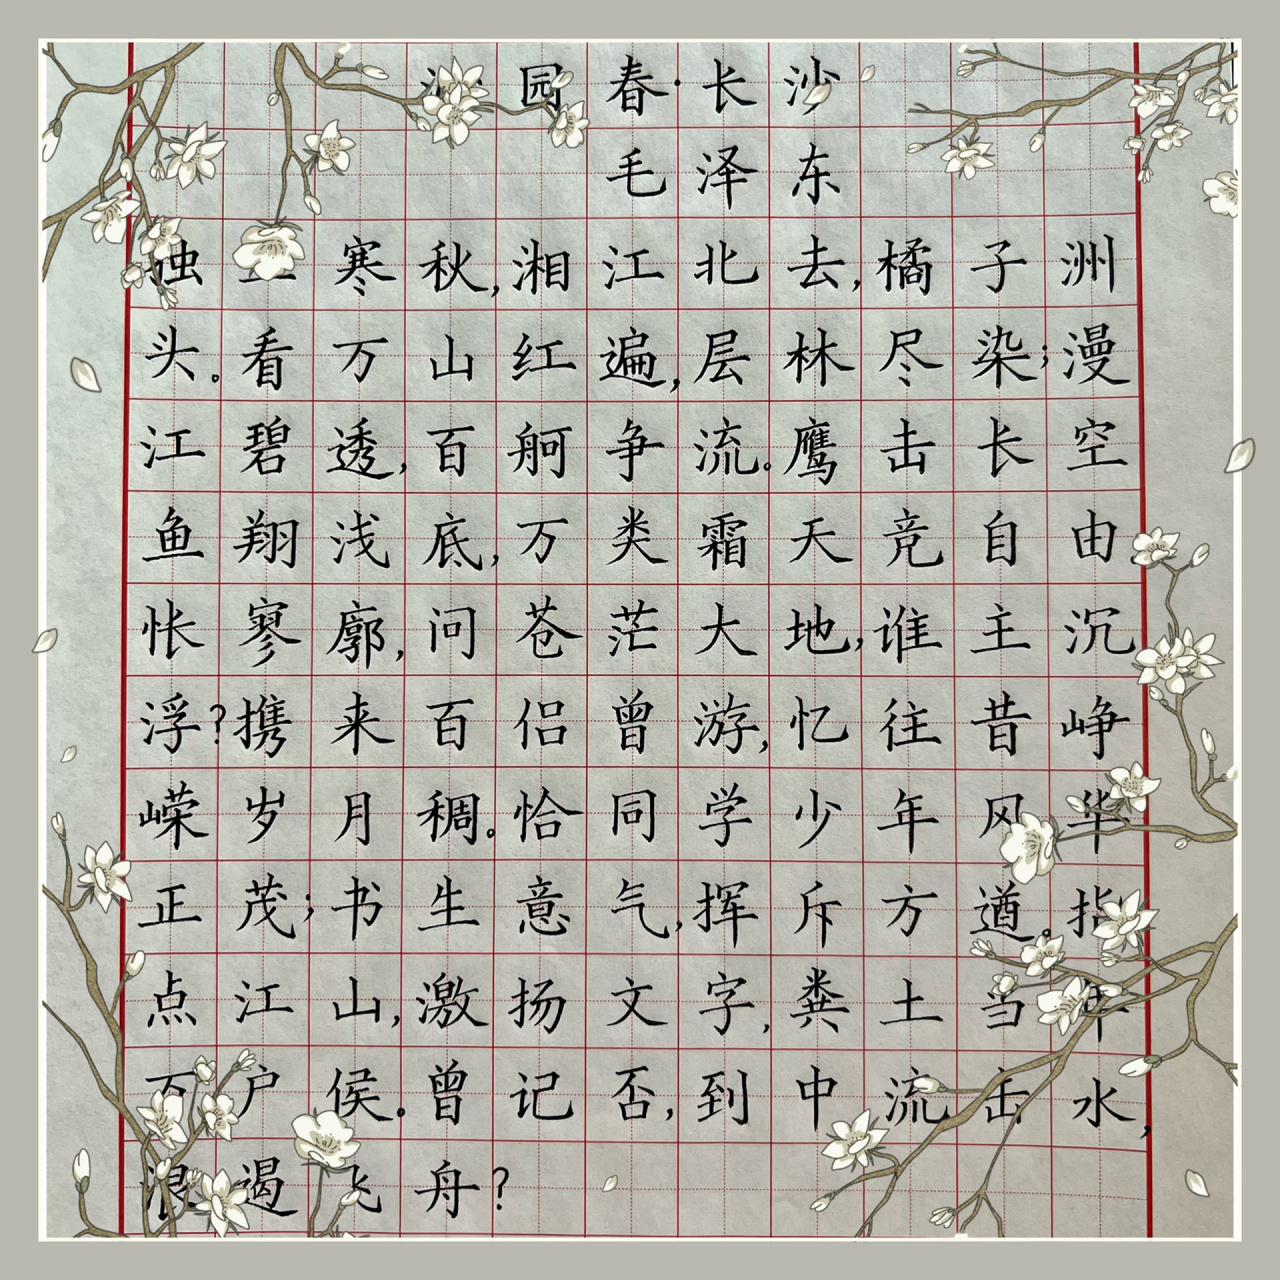 沁园春·长沙
毛泽东
独寒秋,湘江北去,橘子洲
头。看万山红遍,层林尽染;漫
江碧透,百舸争流。鹰击长空
鱼翔浅底,万类霜天竞自由
怅寥廓,问苍茫大地,谁主沉
浮?携来百侣曾游,忆往昔峥
嵘岁月稠。恰同学少年风华
正茂;书生意气,挥斥方遒。指
点江山,激扬文字,粪土当年
万户侯。曾记否,到中流击水,
浪遏飞舟?